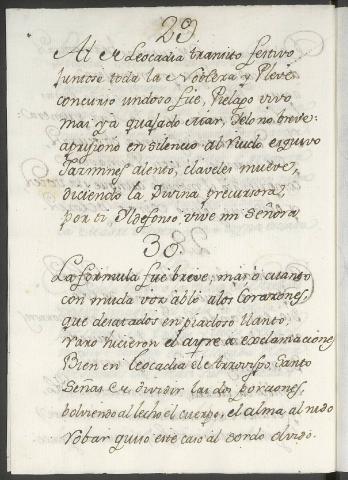 29.
Al de Leocadia transito festivo
Juntose toda la Nobleza y Pleve,
concurso undoso fue, Pielago vivo
mas ya quajado mar, Yelo no breve:
aprisiono en silencio al ruido esquivo
Jazmines alentó, claveles mueve,
diciendo la Divina precursora,
por ti, Ildefonso, vive mi Señora.
30.
La formula fue breve, mas ó cuanto
con muda voz abló a los Corazones,
que desatados en piadoso llanto,
raro hicieron el ayre a exclamaciones
Bien en Leocadia el Arzovispo Santo
Señas de dividir las dos porciones,
bolviendo al lecho el cuerpo, el alma al nido
robar quiso este caso al sordo olvido.